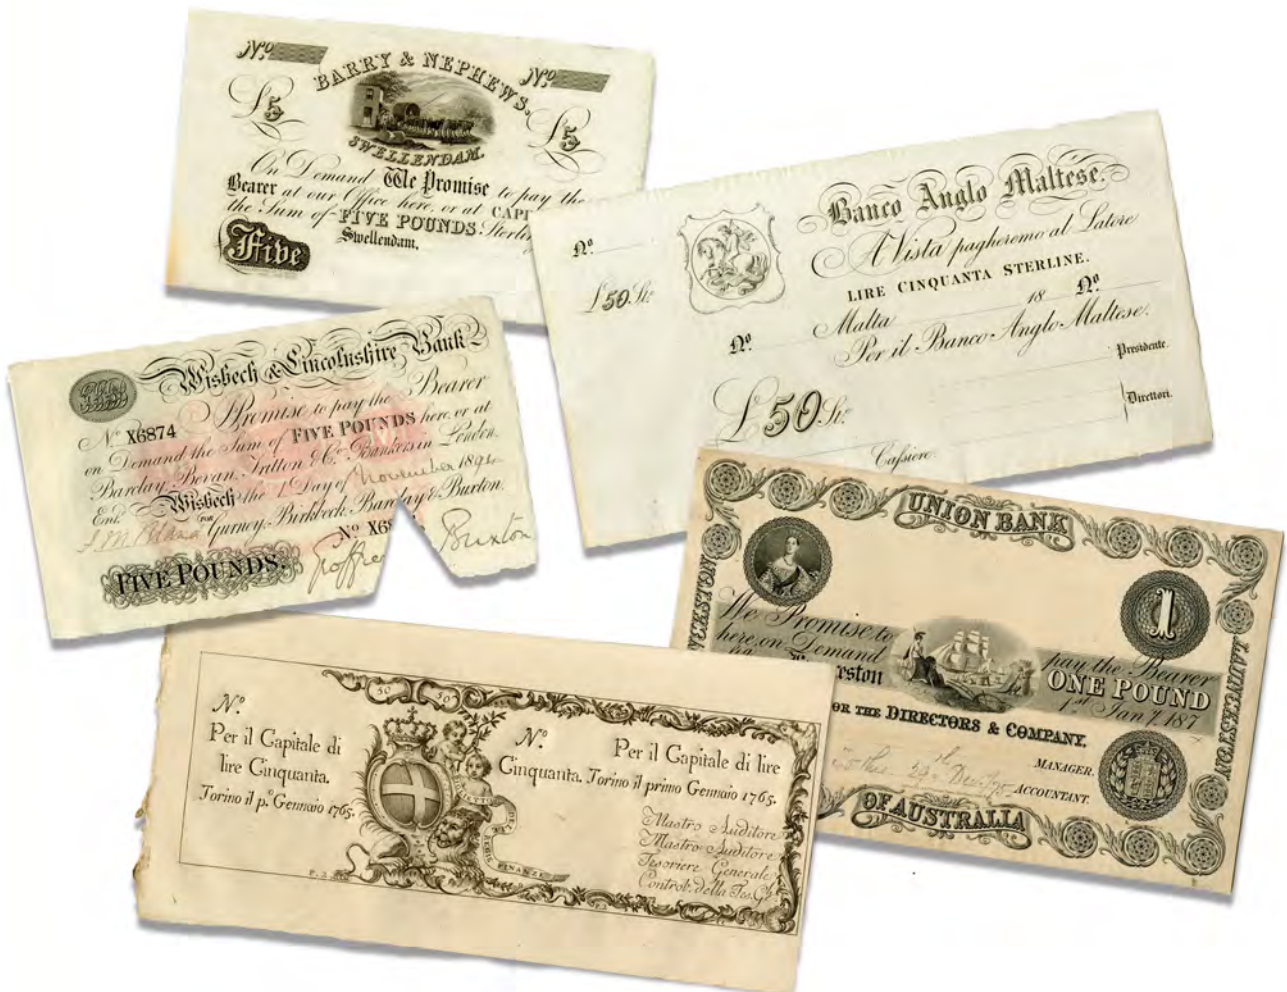 Nº Nº
BARRY & NEPHEWS.
£5 £5
SWELLENDAM.
On Demand We Promise to pay the
Bearer at our Office here, or at
the Sum of FIVE POUNDS
Five
Swellendam,
Banco Anglo Maltese.
Nº
A Vista pagheremo al Latore
£50 St.
LIRE CINQUANTA STERLINE.
Malta 18 Nº
Nº
Per il Banco Anglo Maltese.
Presidente.
£50 St.
Direttori.
Cassiere
Wisbech & Lincolnshire Bank
I Promise to pay the Bearer
Nº X6874
on Demand the Sum of FIVE POUNDS here or at
Barclay, Bevan, Tritton & Co. Bankers in London.
Wisbech the 1 Day of November
Entd.
FOR
Gurney, Birkbeck, Barclay & Buxton.
Nº
FIVE POUNDS.
Buxton
UNION BANK
LAUNCESTON
1
We Promise to pay the Bearer
here, on Demand ONE POUND
1st Jany. 187
FOR THE DIRECTORS & COMPANY.
MANAGER.
ACCOUNTANT.
OF AUSTRALIA
50 50
Nº
Per il Capitale di
lire Cinquanta.
Torino il pº Gennaio 1765.
Nº Per il Capitale di lire
Cinquanta. Torino il primo Gennaio 1765.
Mastro Auditore
Mastro Auditore
Tesoriere Generale